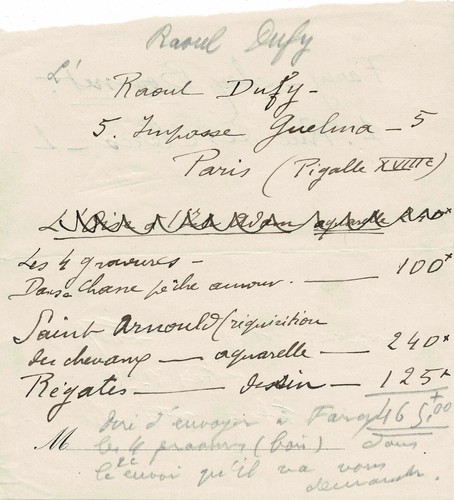 Raoul Dufy
Raoul Dufy -
5. Impasse Guelma - 5
Paris (Pigalle XVIIIe)
aquarelle
Les 4 gravures -
Danse Chasse pêche amour. — 100
Saint Arnould (réquisition
des chevaux — aquarelle — 240
Régates — dessin — 125
465,00
d'envoyer à
M les 4 gravures (bois) dans
le 2e envoi qu'il va vous
demander.